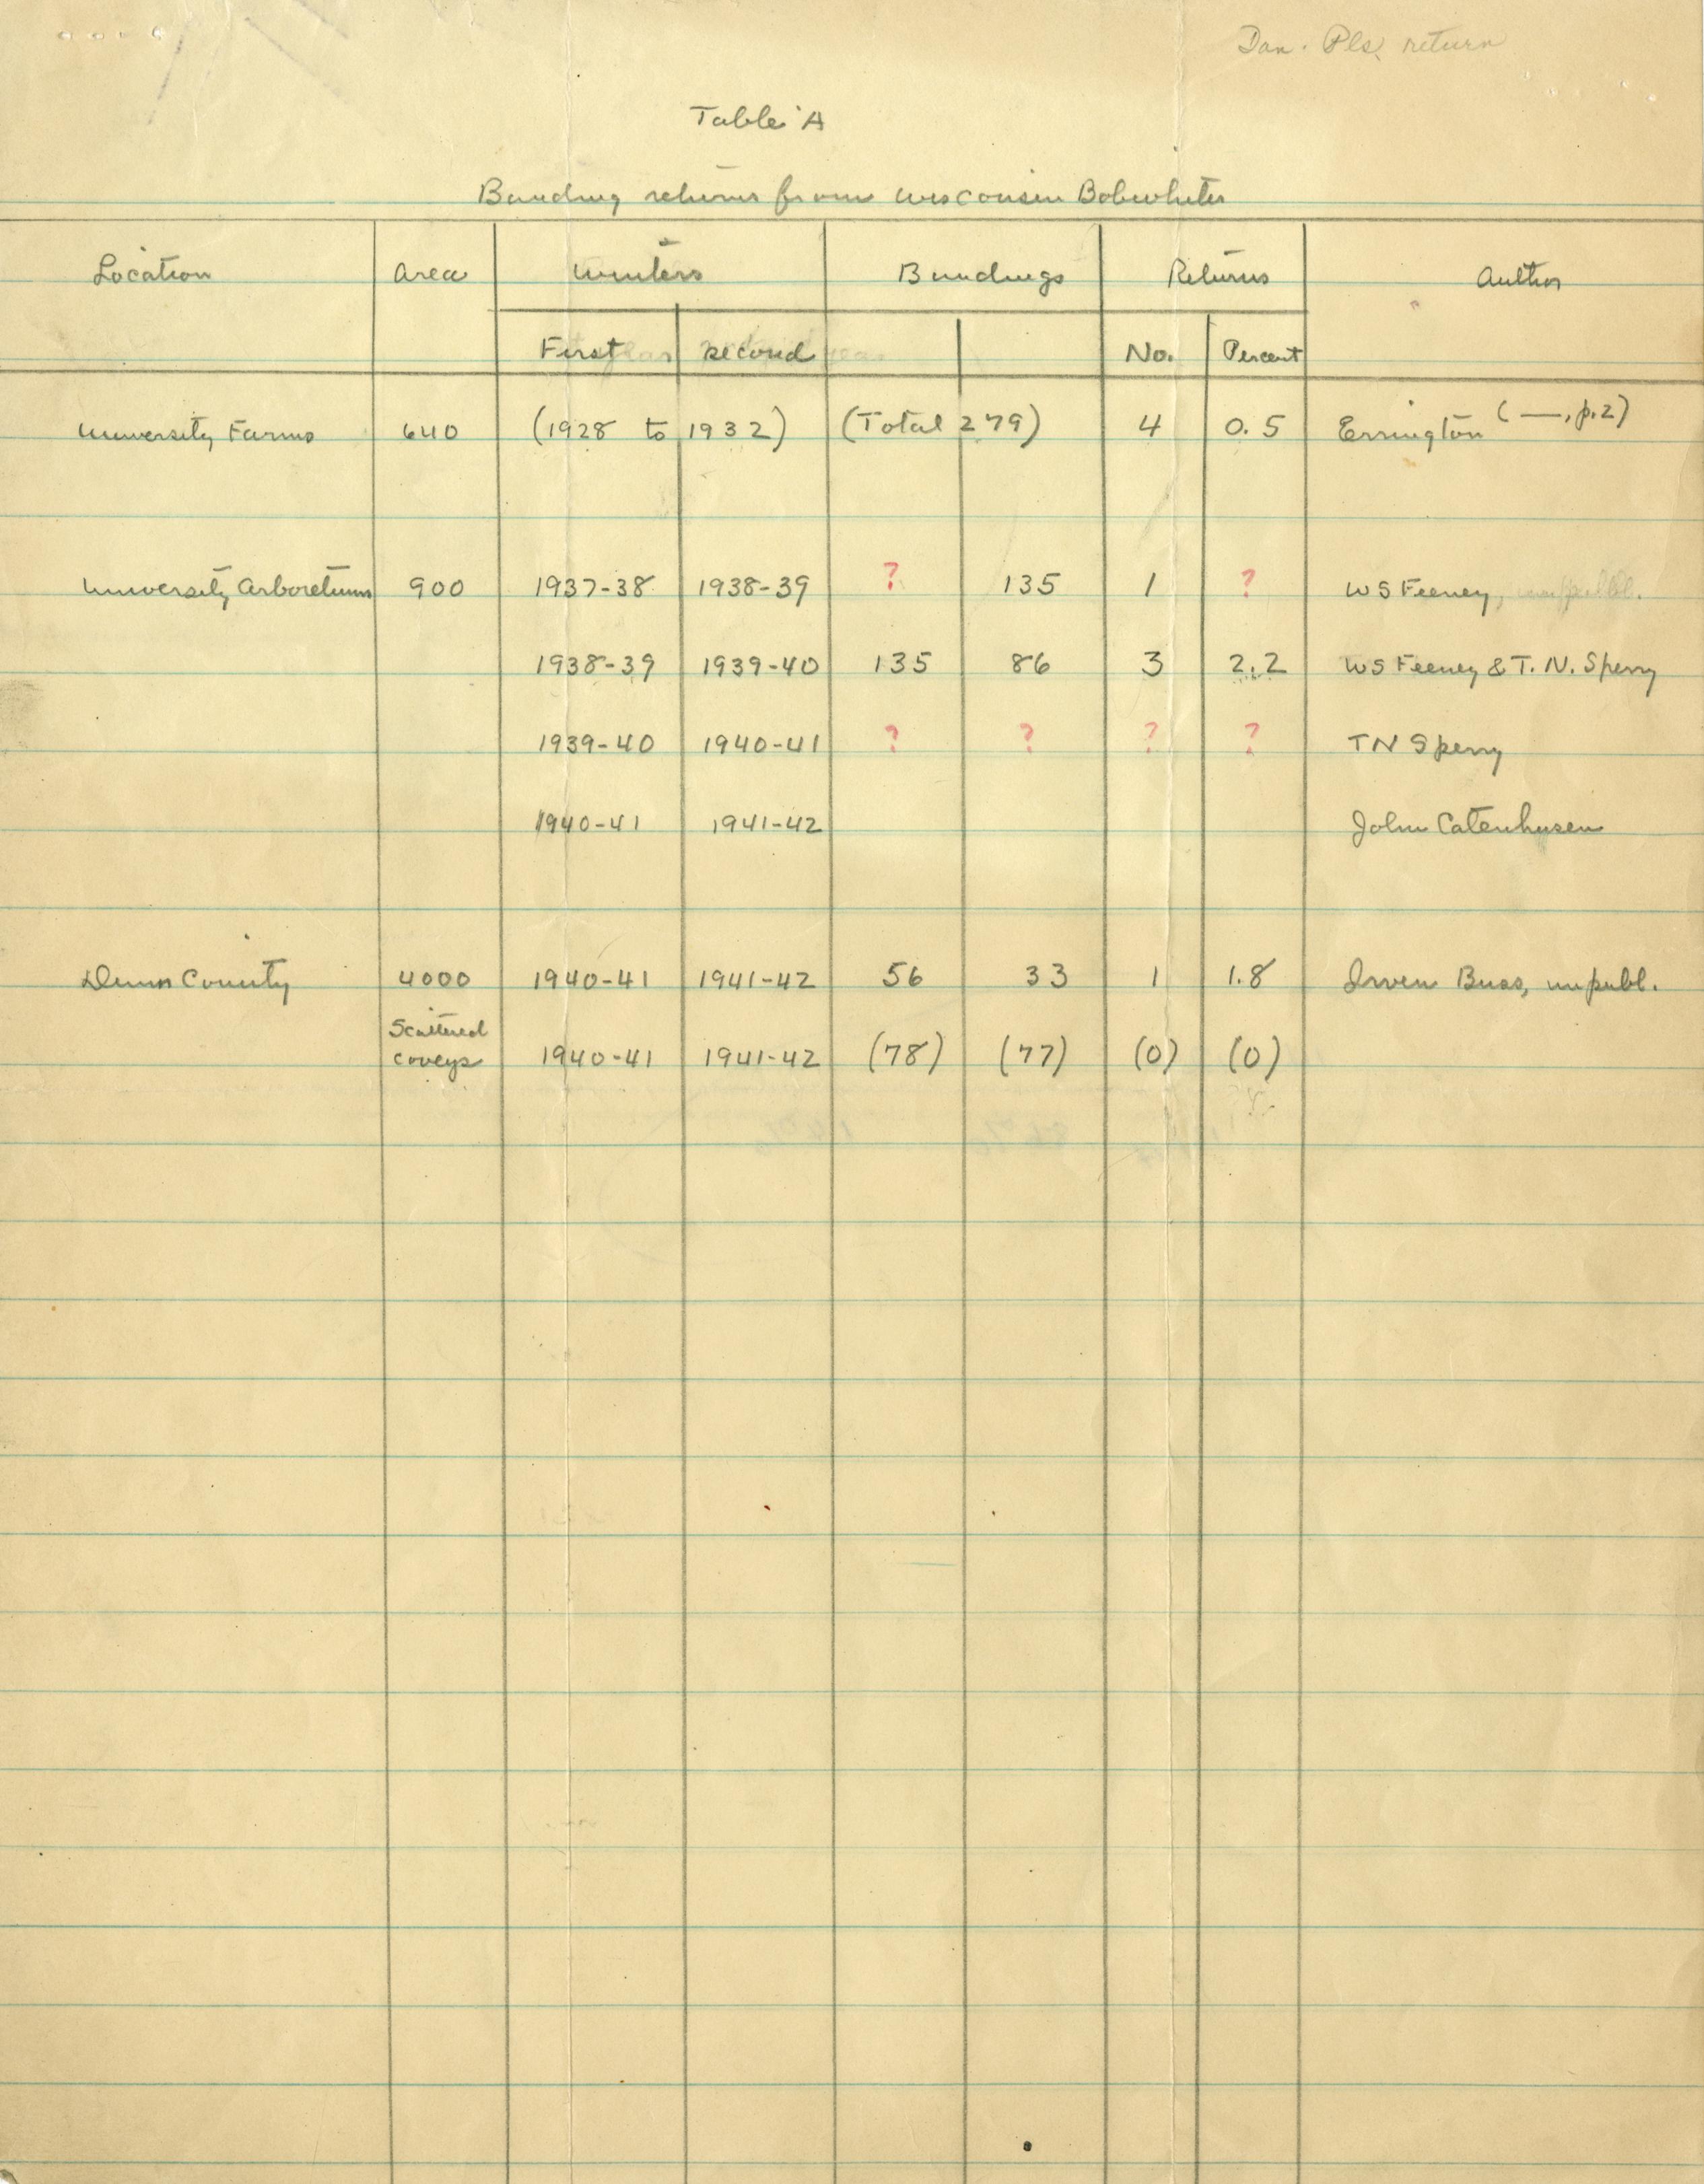 Dan. Pls. return
Table A
Banding returns from Wisconsin Bobwhites
Location Area Winters Bandings Returns Author
First second No. Percent
University Farms 640 (1928 to 1932) (Total 279) 4 0.5 Errington (—, p.2)
University Arboretum 900 1937-38 1938-39 ? 135 1 ? WS Feeney, unpubl.
1938-39 1939-40 135 86 3 2.2 WS Feeney & T. N. Sperry
1939-40 1940-41 ? ? ? ? TN Sperry
1940-41 1941-42 John Catenhusen
Dunn County 4000 1940-41 1941-42 56 33 1 1.8 Irven Buss, unpubl.
Scattered
coveys 1940-41 1941-42 (78) (77) (0) (0)